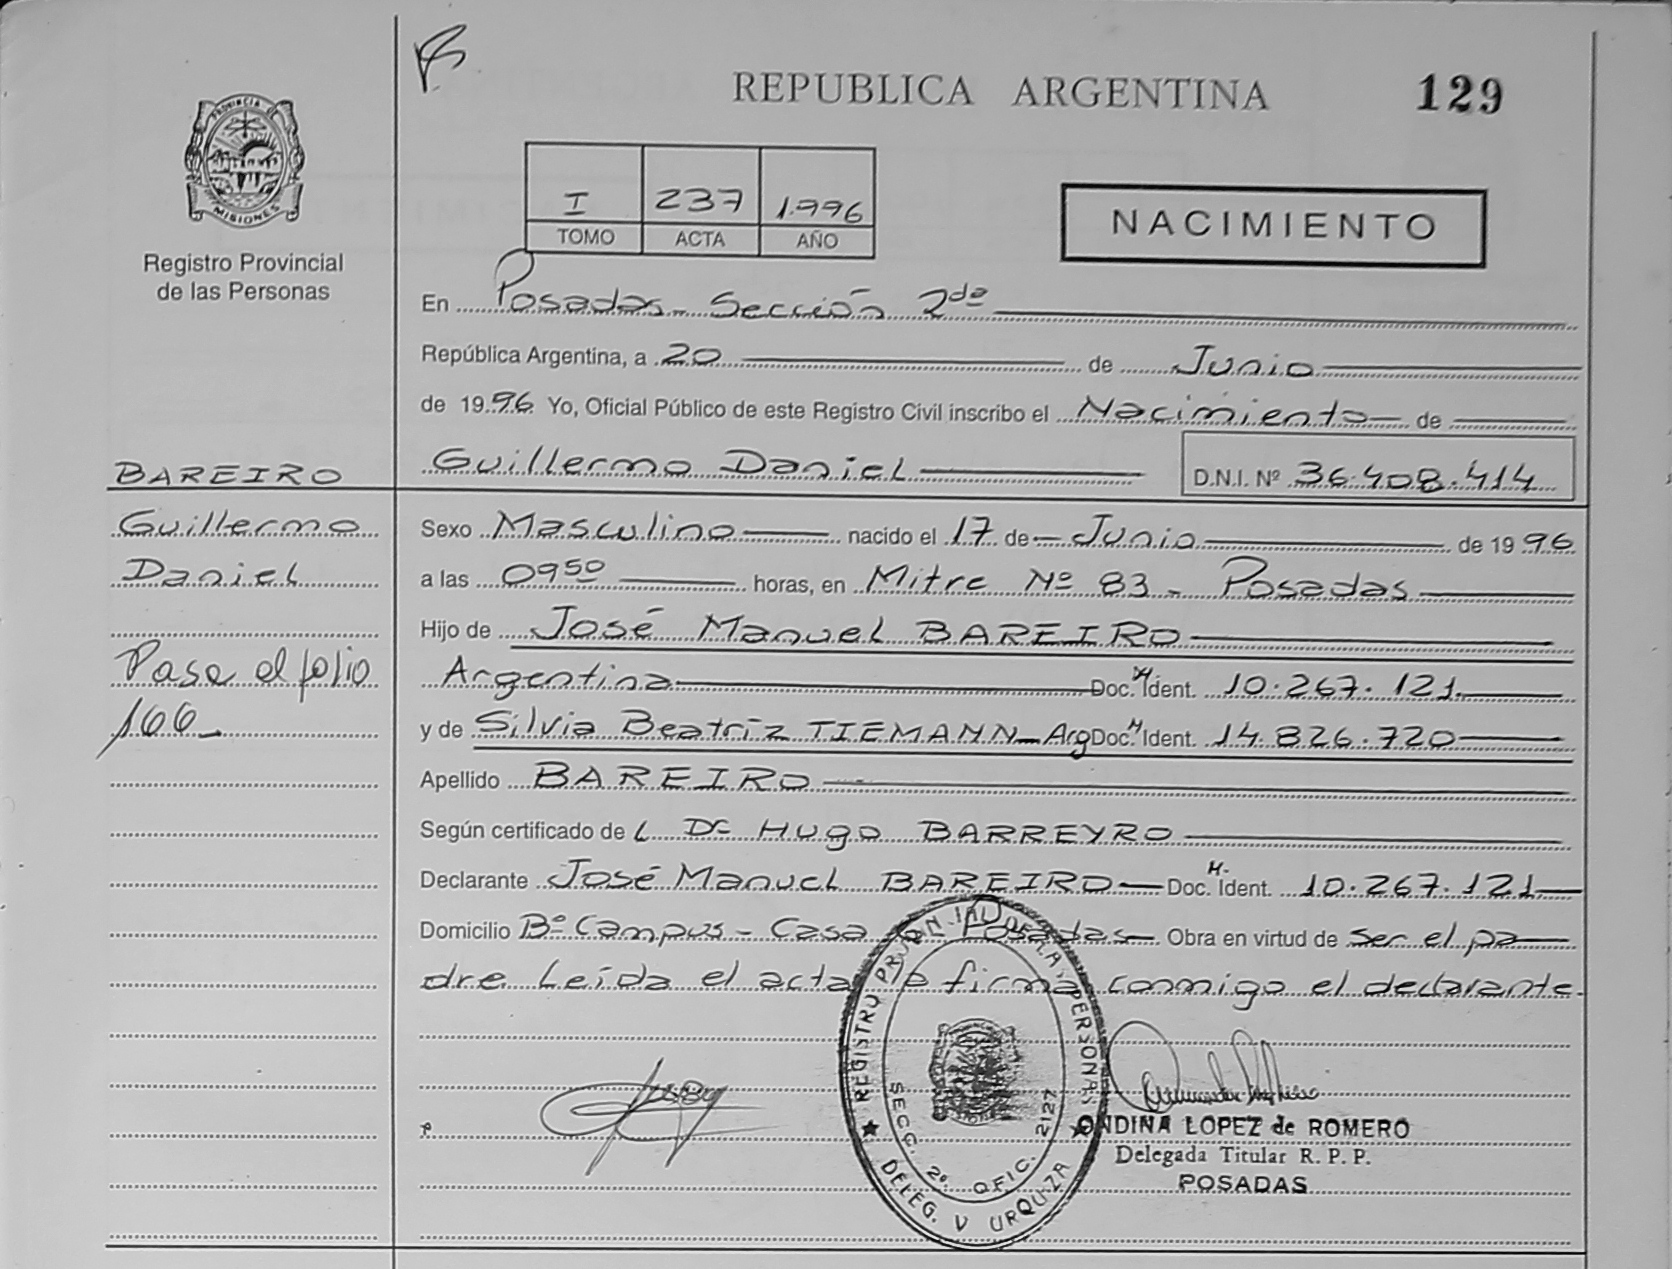 REPUBLICA ARGENTINA
129
PROVINCIA DE
MISIONES
Registro Provincial
de las Personas
I 237 1.996
TOMO ACTA AÑO
NACIMIENTO
En Posadas - Sección 2da
República Argentina, a 20 de Junio
de 1996 Yo, Oficial Público de este Registro Civil inscribo el Nacimiento de
Guillermo Daniel D.N.I. Nº 36.408.414
BAREIRO
Guillermo
Daniel
Pase al folio
166_
Sexo Masculino nacido el 17 de Junio de 1996
a las 0950 horas, en Mitre Nº 83 - Posadas
Hijo de José Manuel BAREIRO
Argentina Doc. M. Ident. 10.267.121
y de Silvia Beatriz TIEMANN - Arg Doc. M. Ident. 14.826.720
Apellido BAREIRO
Según certificado de L Dr Hugo BARREYRO
Declarante José Manuel BAREIRO Doc. M. Ident. 10.267.121
Domicilio Bº Campus - Casa Posadas Obra en virtud de ser el pa
dre. Leída el acta la firma conmigo el declarante.
REGISTRO PROVINCIAL DE LAS PERSONAS
SECC. 2º OFIC. 2127
DELEG. V URQUIZA
ONDINA LOPEZ de ROMERO
Delegada Titular R. P. P.
POSADAS